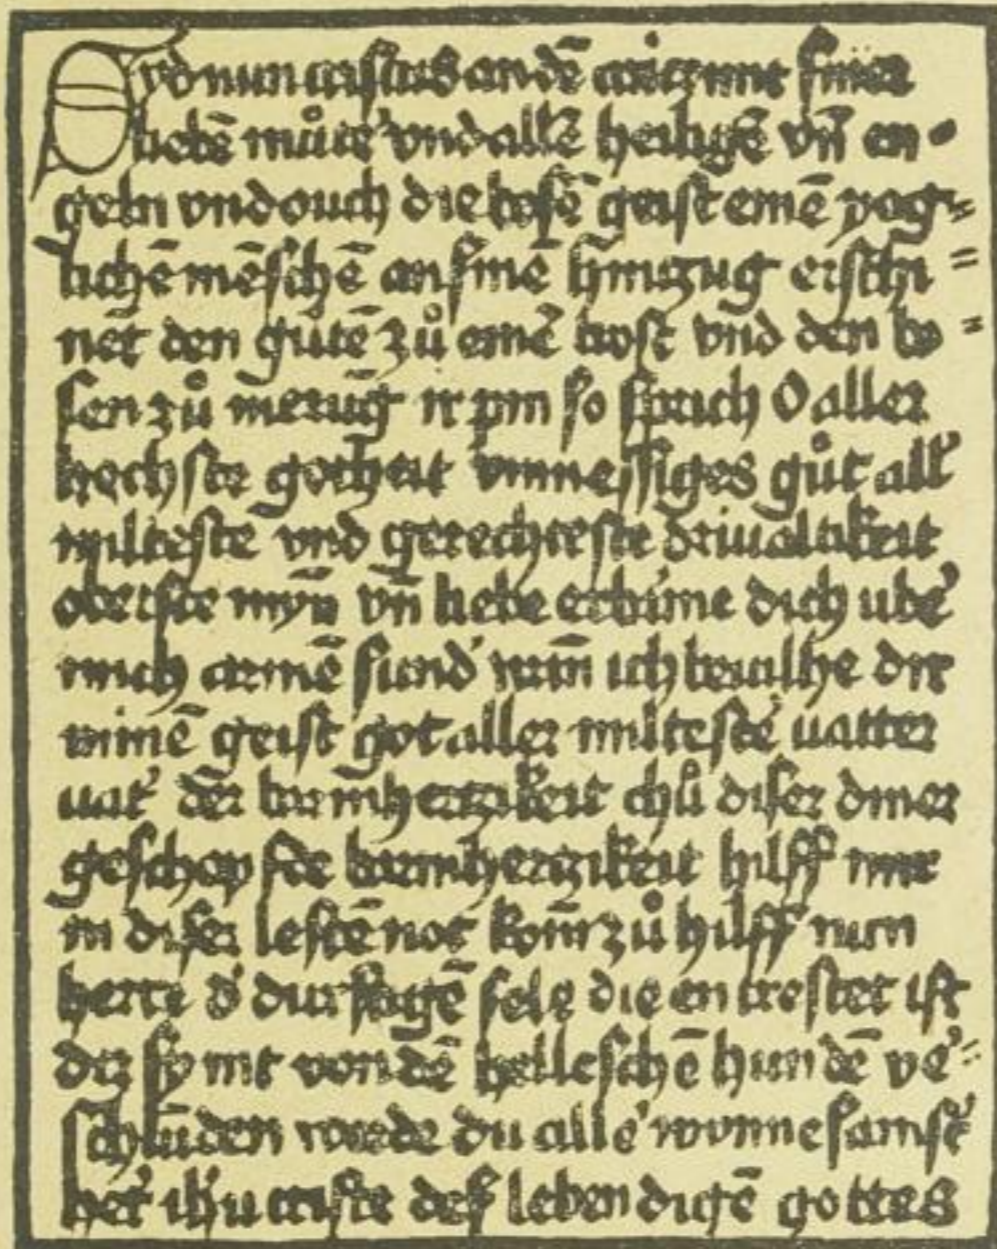 Syd nun cristus an dē crütz mit siner
liebē můter vnd allē heiligē vn̄ en
geln vnd ouch die bosē geist einē yeg=
lichē mēschē an sinē hingug erschi=
net den gutē zů einē trost vnd den bo=
sen zů merūg ir pin so sprich O aller
hochste gotheit vnmessiges gůt all'
milteste vnd gerechteste driualtikeit
oberste myn vn̄ liebe erbarme dich ube'
mich armē sund' wan̄ ich beuilhe dir
minē geist got aller milteste' uatter
uat' der barm̄hertzikeit thů diser diner
geschopfde barmhertzikeit hilff mir
in diser lestē not kom̄ zů hilff min
herre d' durstigē sele die en trestet ist
dz sy nit von dē helleschē hundē ve'=
schlunden werde du alle' wunnesamst'
her' ih'u criste des lebendigē gottes